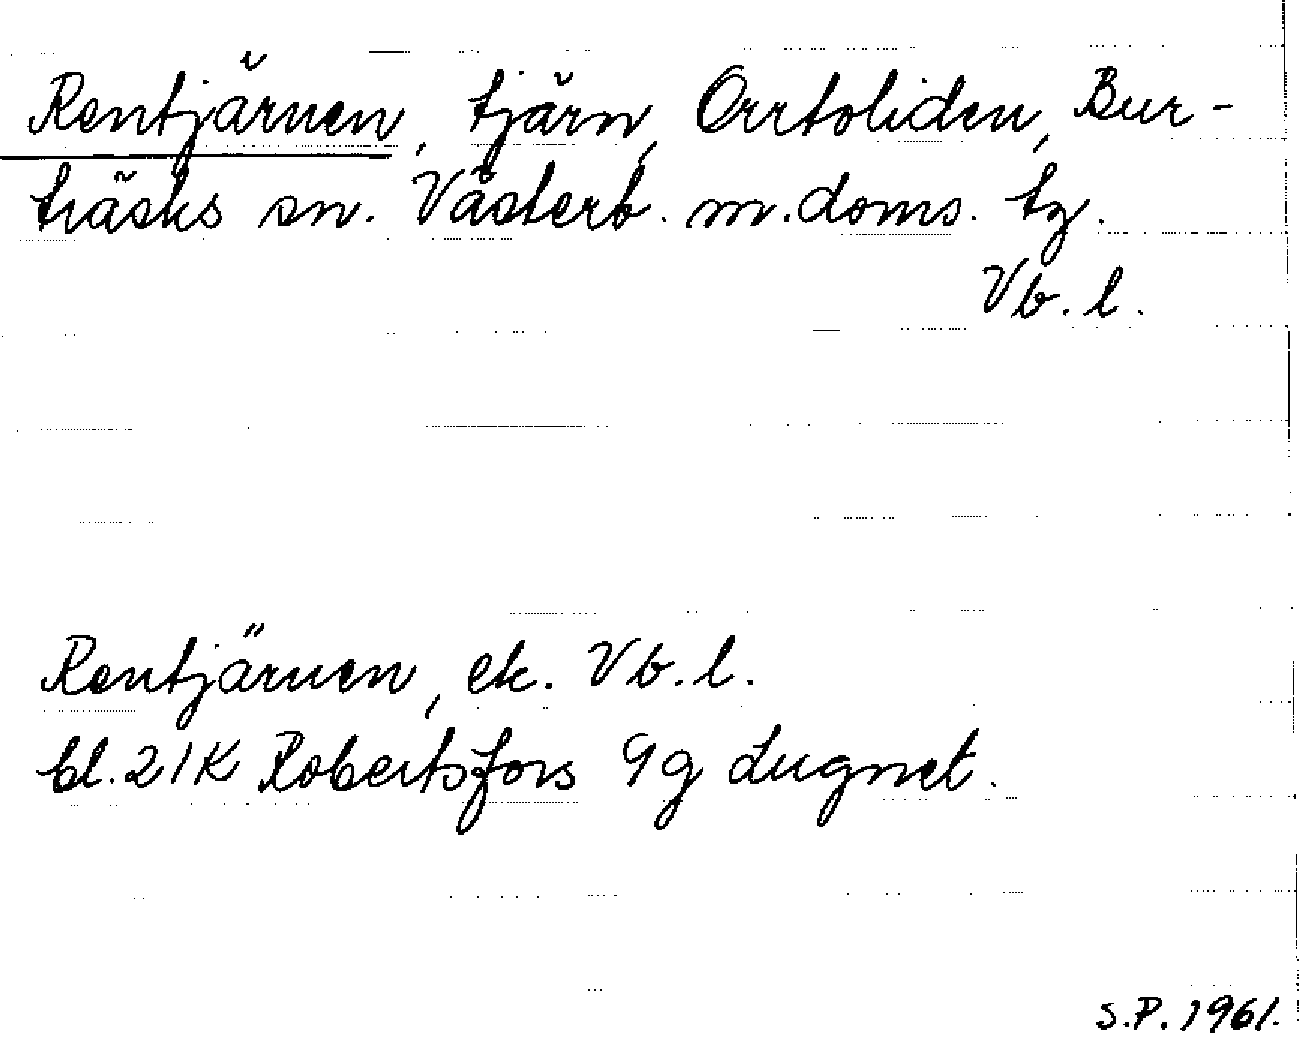 Rentjärnen, tjärn, Orrtoliden, Bur-
träsks sn. Västerb. m.doms. tg.
Vb. l.
Rentjärnen, ek. Vb. l.
bl. 21K Robertsfors 9g Lugnet.
S.P. 1961.